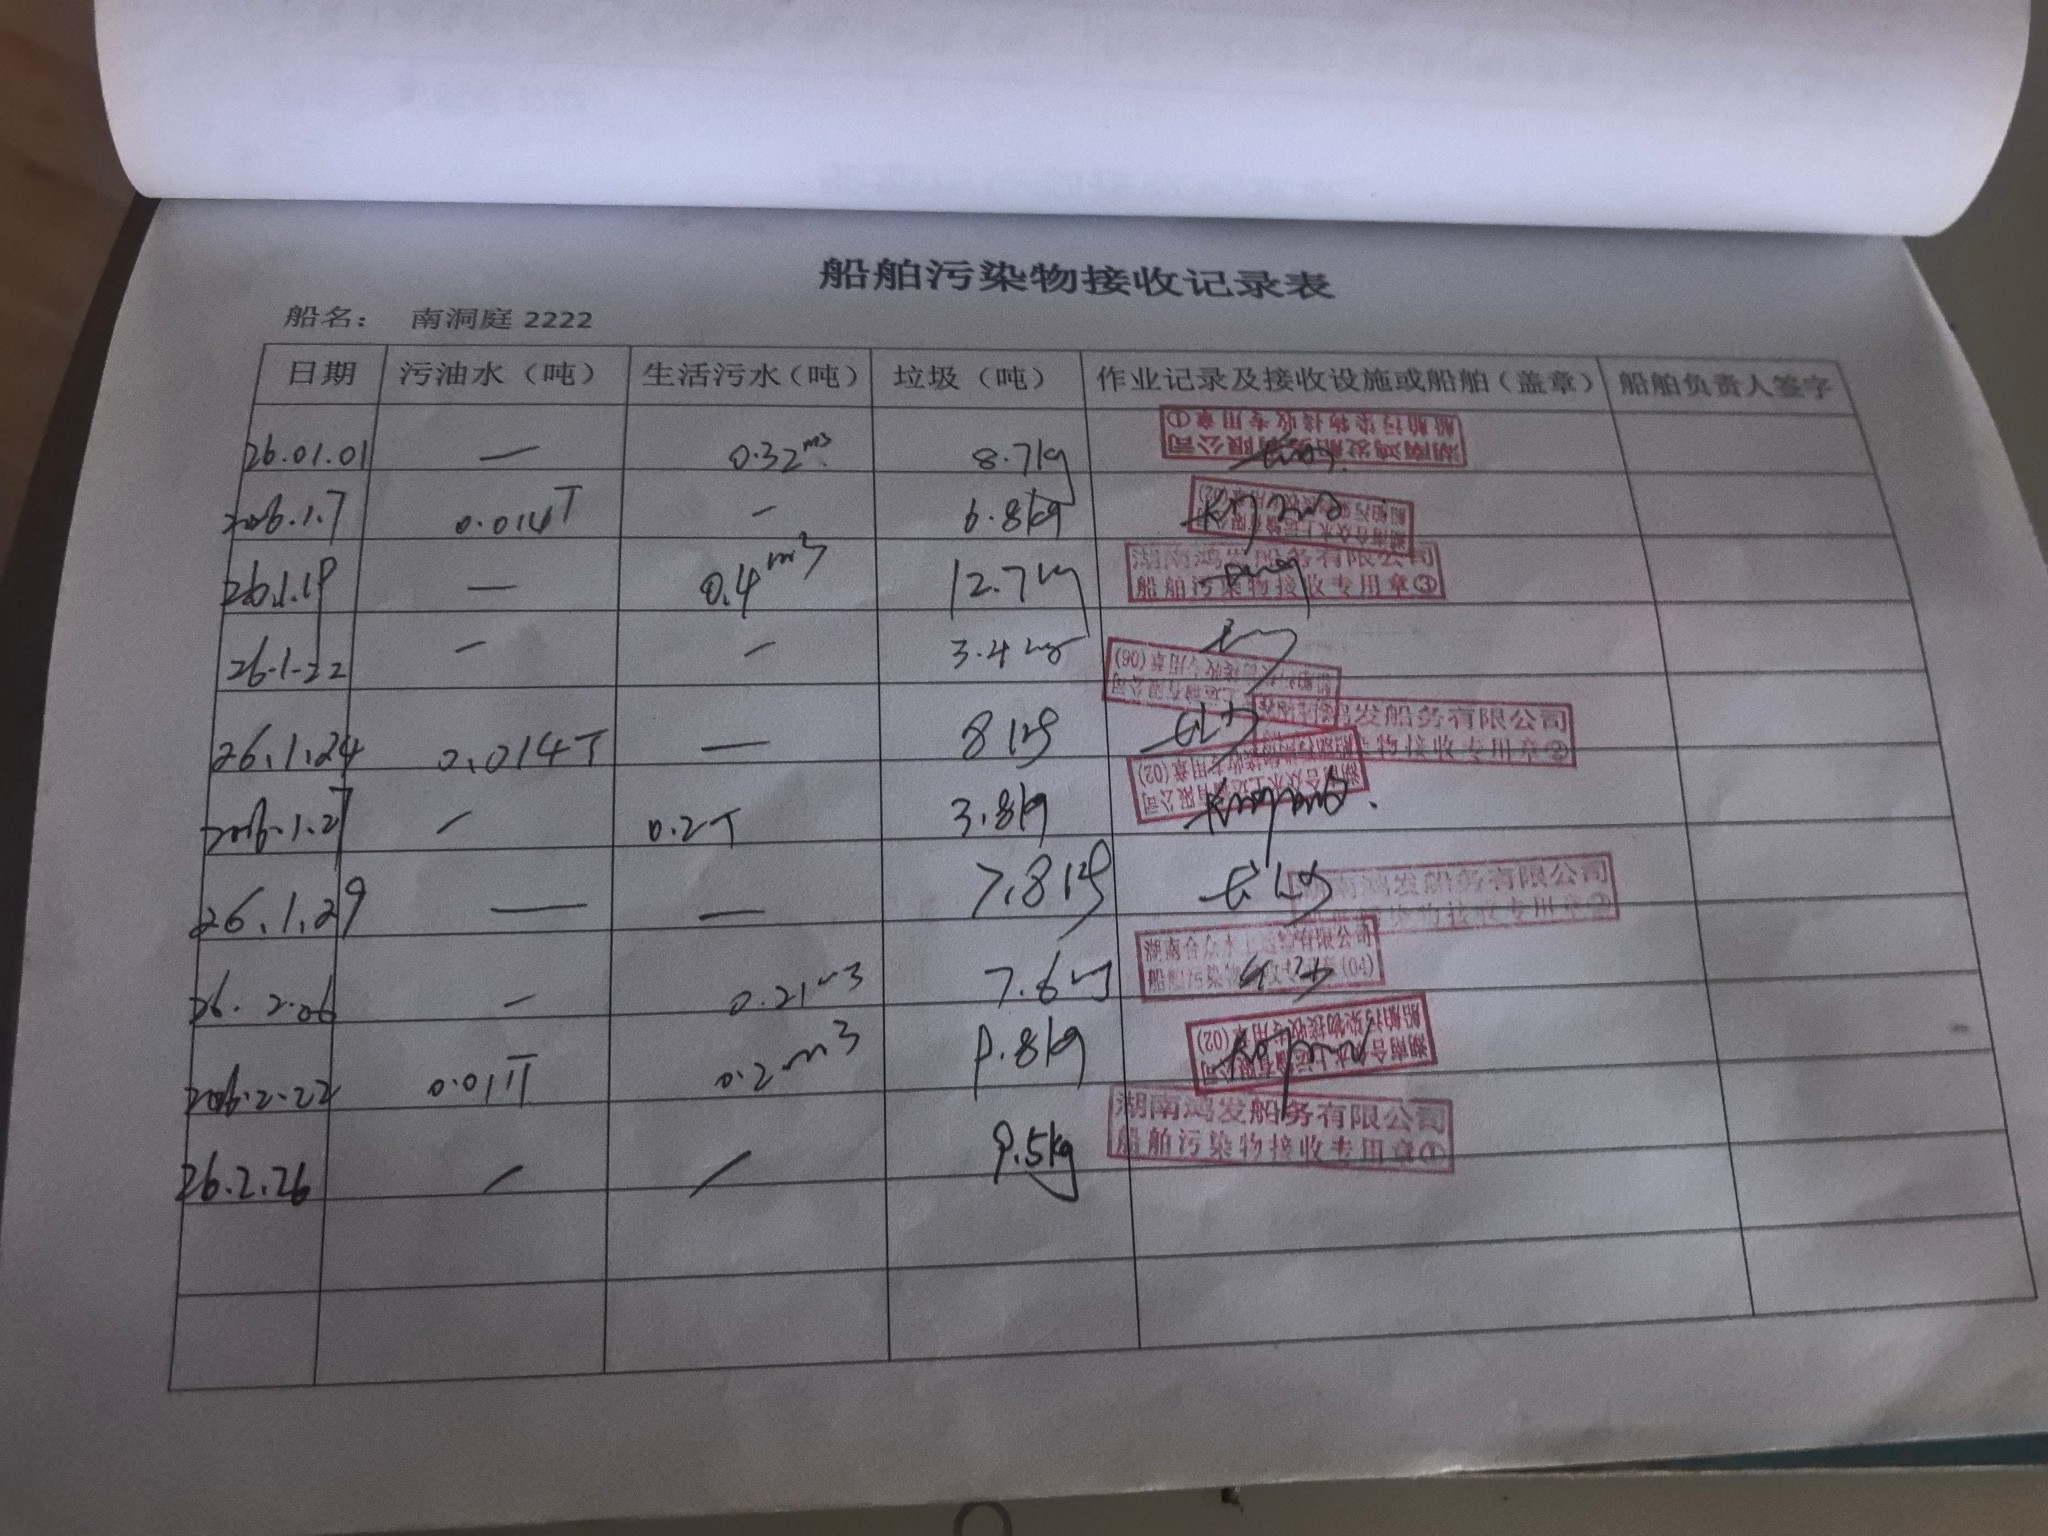 船舶污染物接收记录表
船名： 南洞庭 2222
日期 污油水（吨） 生活污水（吨） 垃圾（吨） 作业记录及接收设施或船舶（盖章） 船舶负责人签字
26.01.01 — 0.32m³ 8.7kg 湖南鸿发船务有限公司 船舶污染物接收专用章①
2026.1.7 0.014T — 6.8kg 湖南合众水上运输有限公司 船舶污染物接收专用章(02)
26.1.19 — 0.4m³ 12.7kg 湖南鸿发船务有限公司 船舶污染物接收专用章③
26.1.22 — — 3.4kg 上运输有限公司 接收专用章(06)
26.1.24 0.014T — 8kg 鸿发船务有限公司 物接收专用章②
2026.1.27 — 0.2T 3.8kg 湖南合众水上运输有限公司 接收专用章(02)
26.1.29 — — 7.8kg 湖南鸿发船务有限公司 染物接收专用章②
26.2.06 — 0.21m3 7.6kg 湖南合众水上运输有限公司 船舶污染物接收专用章(04)
2026.2.22 0.01T 0.2m3 9.8kg 湖南合众水上运输有限公司 船舶污染物接收专用章(02)
26.2.26 — — 9.5kg 湖南鸿发船务有限公司 船舶污染物接收专用章①